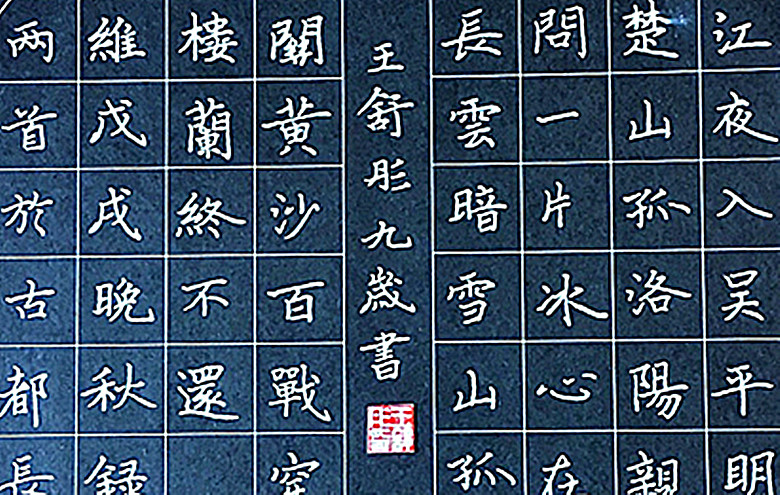 江夜入吴平明
楚山孤洛陽親
問一片冰心在
長雲暗雪山孤
王舒彤九歲書
關黄沙百戰穿
樓蘭終不還
維戊戌晚秋録
两首於古都長